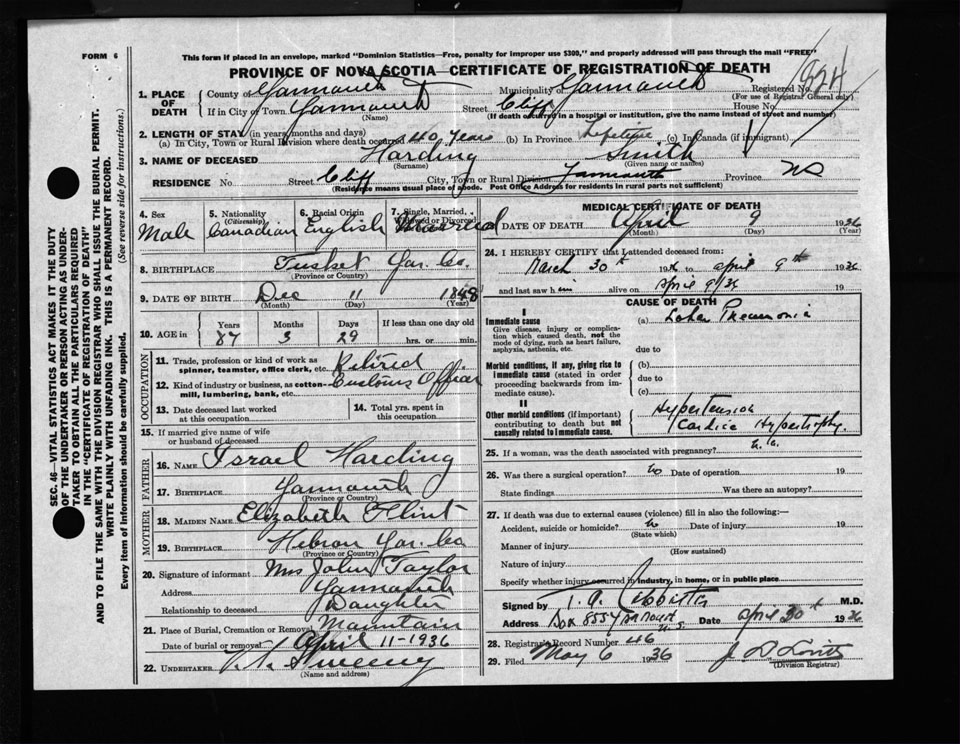 FORM 6
This form if placed in an envelope, marked "Dominion Statistics—Free, penalty for improper use $300," and properly addressed will pass through the mail "FREE"
PROVINCE OF NOVA SCOTIA—CERTIFICATE OF REGISTRATION OF DEATH
1. PLACE OF DEATH
County of Yarmouth Municipality Yarmouth Registered No.
(For use of Registrar General only)
If in City or Town Yarmouth Street Cliff House No.
(Name) (If death occurred in a hospital or institution, give the name instead of street and number)
2. LENGTH OF STAY (in years, months and days)
(a) In City, Town or Rural Division where death occurred 40 years (b) In Province Lifetime (c) In Canada (if immigrant)
3. NAME OF DECEASED Harding Smith
(Surname) (Given name or names)
RESIDENCE No. Street Cliff City, Town or Rural Division Yarmouth Province NS
(Residence means usual place of abode. Post Office Address for residents in rural parts not sufficient)
4. Sex Male
5. Nationality (Citizenship) Canadian
6. Racial Origin English
7. Single, Married, Widowed or Divorced
8. BIRTHPLACE Tusket Yar. Co.
(Province or Country)
9. DATE OF BIRTH Dec 11 1848
(Month) (Day) (Year)
10. AGE in Years 87 Months 3 Days 29 If less than one day old hrs. or min.
OCCUPATION
11. Trade, profession or kind of work as spinner, teamster, office clerk, etc. Retired
12. Kind of industry or business, as cotton-mill, lumbering, bank, etc. Customs Officer
13. Date deceased last worked at this occupation
14. Total yrs. spent in this occupation
15. If married give name of wife or husband of deceased
FATHER
16. NAME Israel Harding
17. BIRTHPLACE Yarmouth
(Province or Country)
MOTHER
18. MAIDEN NAME Elizabeth Flint
19. BIRTHPLACE Hebron Yar. Co
(Province or Country)
20. Signature of informant Mrs John Taylor
Address Yarmouth
Relationship to deceased Daughter
21. Place of Burial, Cremation or Removal Mountain
Date of burial or removal April 11-1936
22. UNDERTAKER Sweeny
(Name and address)
MEDICAL CERTIFICATE OF DEATH
DATE OF DEATH April 9 1936
(Month) (Day) (Year)
24. I HEREBY CERTIFY that I attended deceased from:
March 30th 1936 to April 9th 1936
and last saw him alive on April 9/36 19
CAUSE OF DEATH
I
Immediate cause
Give disease, injury or complication which caused death, not the mode of dying, such as heart failure, asphyxia, asthenia, etc.
(a) Lobar Pneumonia
due to
Morbid conditions, if any, giving rise to immediate cause (stated in order proceeding backwards from immediate cause).
(b)
due to
(c)
II
Other morbid conditions (if important) contributing to death but not causally related to immediate cause.
Hypertension
Cardiac Hypertrophy.
25. If a woman, was the death associated with pregnancy?
26. Was there a surgical operation? No Date of operation 19
State findings Was there an autopsy?
27. If death was due to external causes (violence) fill in also the following:—
Accident, suicide or homicide? No Date of injury 19
(State which)
Manner of injury
(How sustained)
Nature of injury
Specify whether injury occurred in industry, in home, or in public place
Signed by M.D.
Address Box 855 Yarmouth N.S. Date April 30th 1936
28. Registrar's Record Number 46
29. Filed May 6 1936
(Division Registrar)
SEC. 46—VITAL STATISTICS ACT MAKES IT THE DUTY OF THE UNDERTAKER OR PERSON ACTING AS UNDERTAKER TO OBTAIN ALL THE PARTICULARS REQUIRED IN THE "CERTIFICATE OF REGISTRATION OF DEATH"
AND TO FILE THE SAME WITH THE DIVISION REGISTRAR WHO SHALL ISSUE THE BURIAL PERMIT.
WRITE PLAINLY WITH UNFADING INK. THIS IS A PERMANENT RECORD.
Every item of information should be carefully supplied. (See reverse side for instructions.)